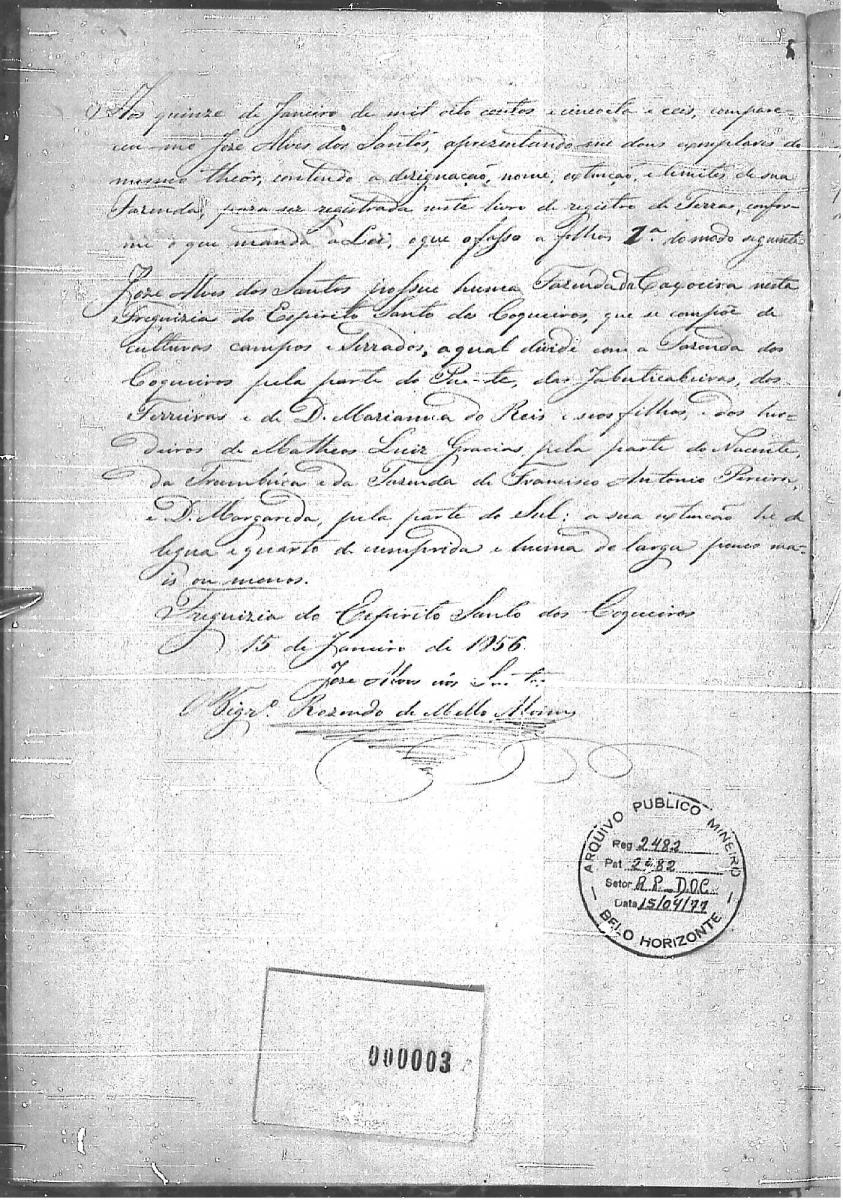 Aos quinze de Janeiro de mil oito centos e cincoenta e ceis, compare-
ceu-me José Alves dos Santos, aprezentando me dous exemplares do
mesmo theôr, contendo a dezignação, nome, extenção, e limites de sua
Fazenda, para ser registrada neste livro de registro de Terras, confor-
me o que manda a Lei, o que o fasso a folhas 2.ª do modo seguinte
Joze Alves dos Santos possue huma Fazenda da Caxoeira nesta
Freguizia do Espirito Santo dos Coqueiros, que se compõe de
culturas campos e Serrados, a qual divide com a Fazenda dos
Coqueiros pela parte do Poente, das Jabuticabeiras, dos
Ferreiras e de D. Marianna do Reis e seos filhos, e dos her-
deiros de Matheos Luiz Gracias, pela parte do Nacente,
da e da Fazenda de Francisco Antonio Pereira,
e D. Margarida, pela parte do Sul; a sua extenção he de
legua e quarto de cumprida e huma de larga pouco ma-
is ou menos.
Freguizia do Espirito Santo dos Coqueiros
15 de Janeiro de 1856.
Joze Alves dos Santos
O Vigr.º Rozendo de Mello
ARQUIVO PUBLICO MINEIRO
Reg 2482
Pat 2482
Setor A.P. DOC
Data 15/04/77
— BELO HORIZONTE —
000003